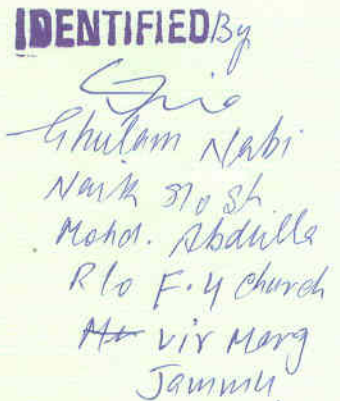 IDENTIFIED By
Ghulam Nabi
Naik S/o Sh
Mohd. Abdulla
R/o F-4 Church
Vir Marg
Jammu